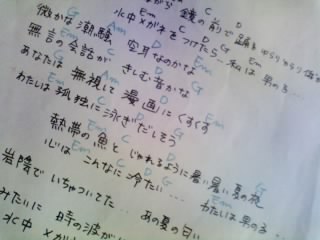 鏡の前で踊る ゆらゆら
Em C D G Em
水中メガネをつけたら… 私は男の
G Am D Em
微かな潮騒 空耳なのかな
G Am D Em
無言の会話が きしむ音かな
G Am D Em
あなたは無視して漫画にくすくす
Em C D G
わたしは孤独に泳ぎだしそう
熱帯の魚とじゃれるように暑い暑い夏の夜
Em C D G Em G
心はこんなに冷たい… わたしは男の
岩陰でいちゃついてた… あの夏の匂い
みたいに 時の波が
水中メガ